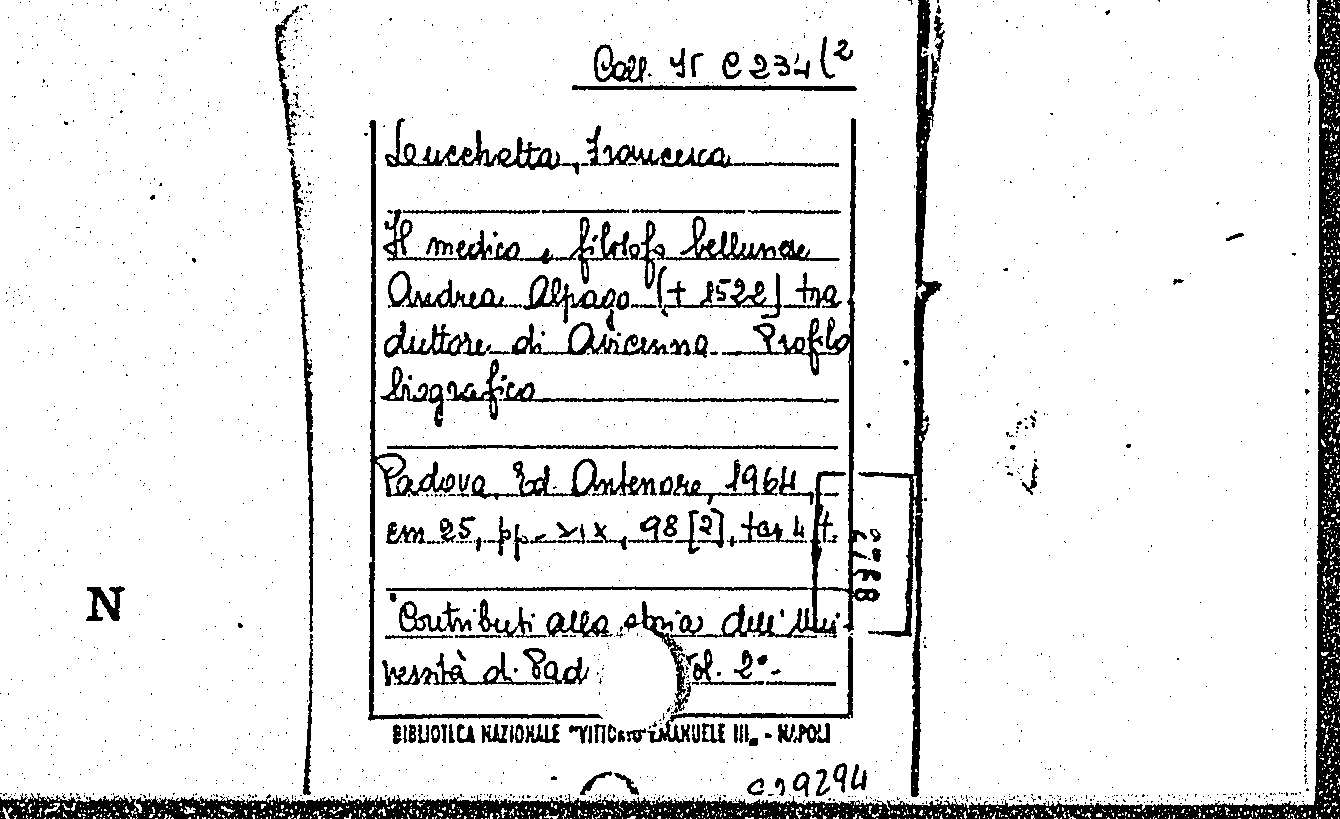 Coll. IV C 234 (2
Lucchetta, Francesca
Il medico e filosofo bellunese
Andrea Alpago († 1522) tra
duttore di Avicenna. Profilo
biografico
Padova, Ed. Antenore, 1964,
cm 25, pp. XIX, 98 [2], tav. 4 f.t.
"Contributi alla storia dell'Uni-
versità di Pad ol. 2°-
N
BIBLIOTECA NAZIONALE "VITTORIO EMANUELE III„ - NAPOLI